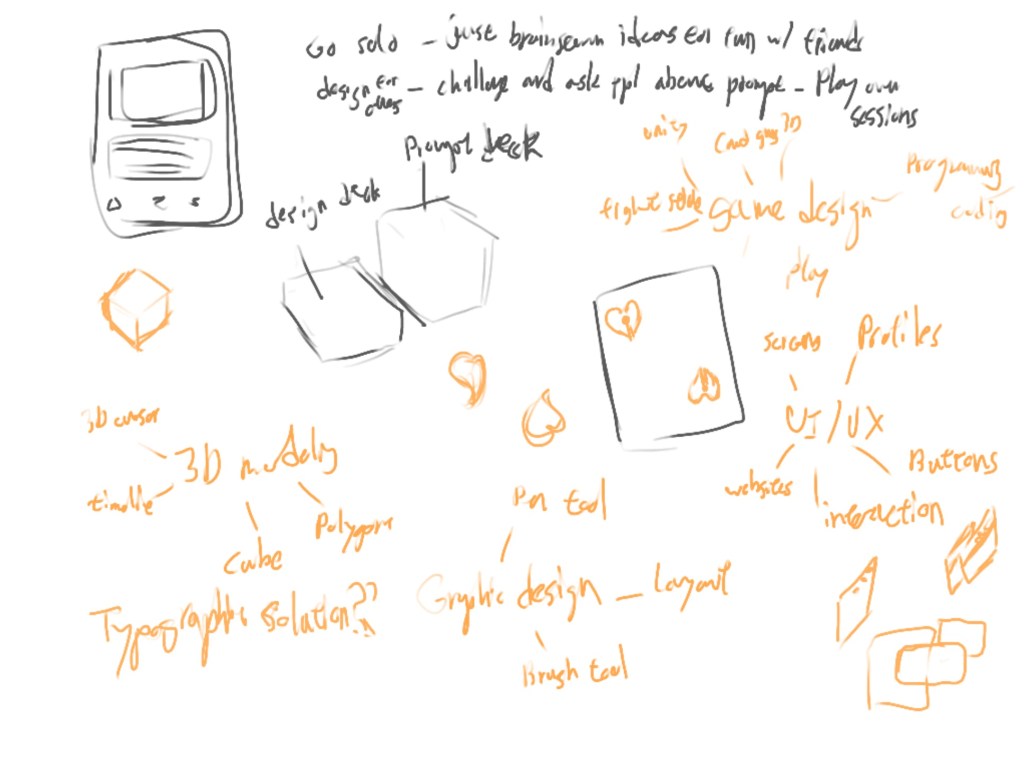 Go solo - just brainstorm ideas for fun w/ friends
design for - challenge and ask ppl prompt - Play own
sessions
Prompt deck
design deck
unity
3D
Programming
game design
coding
Play
Profiles
UI/UX
3D cursor
3D modeling
Buttons
websites
Pen tool
interaction
Polygons
cube
Graphic design - Layout
Typographic solution??
Brush tool